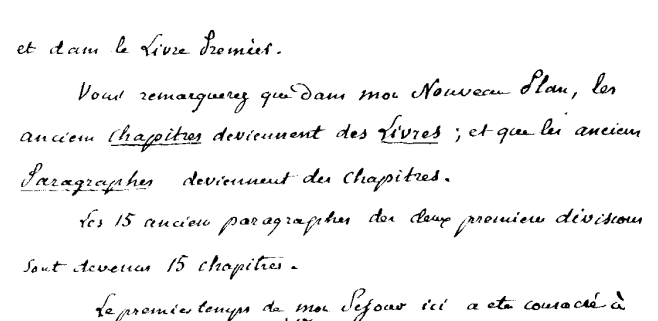 et dans le Livre Premier.
Vous remarquerez que dans mon Nouveau Plan, les
anciens chapitres deviennent des Livres ; et que les anciens
Paragraphes deviennent des Chapitres.
Les 15 anciens paragraphes des deux premieres divisions
sont devenus 15 chapitres.
Le premier temps de mon Sejour ici a ete consacré à